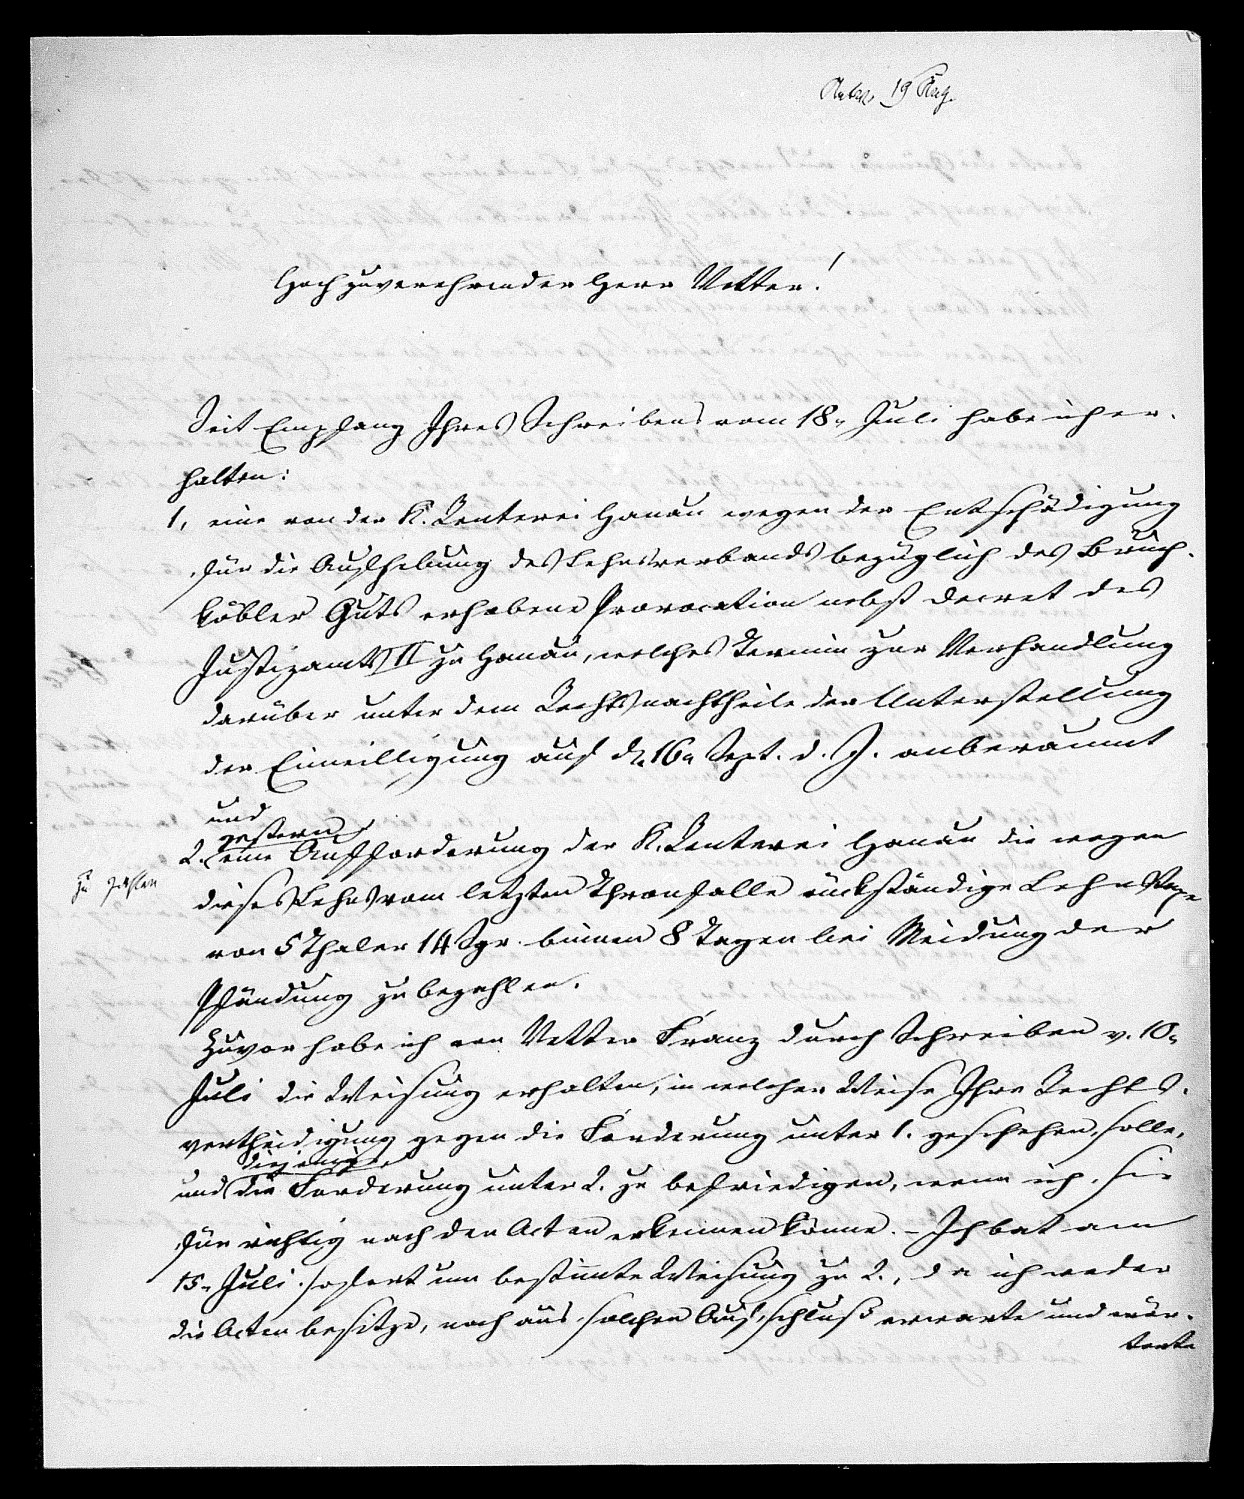 19 Aug.
Hochzuverehrender Herr Vetter!
Seit Empfang Ihres Schreibens vom 18n Juli habe ich er-
halten:
1, eine von der K. Renterei Hanau wegen der Entschädigung
für die Aufhebung des Lehnsverbands bezüglich des Bruch-
köbler Guts erhobene Provocation nebst Decret des
Justizamts II zu Hanau, welches Termin zur Verhandlung
darüber unter dem Rechtsnachtheile der Unterstellung
der Einwilligung auf d. 16n Sept. d. J. anberaumt
und
gestern
2. eine Aufforderung der K. Renterei Hanau die wegen
zu zahlen
dieses Lehns vom letzten Thronfalle rückständige Lehns
von 5 Thaler 14 Sgr. binnen 8 Tagen bei Meidung der
Pfändung zu bezahlen.
Zuvor habe ich von Vetter Franz durch Schreiben v. 10n
Juli die Weisung erhalten, in welcher Weise Ihre Rechts-
vertheidigung gegen die Forderung unter 1. geschehen solle,
diejenige
und die Forderung unter 2. zu befriedigen, wenn ich sie
für richtig nach den Acten erkennen könne. – Ich bat am
15n Juli sofort um bestimmte Weisung zu 2., da ich weder
die Acten besitze, noch aus solchen Aufschluß erwarte und erör-
terte